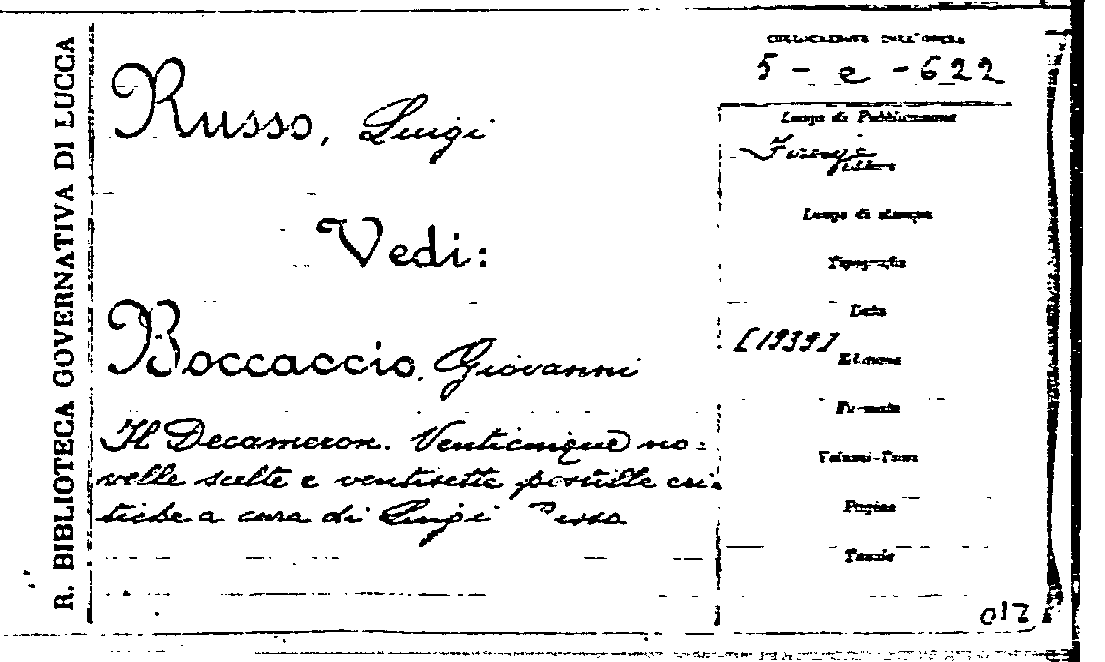 R. BIBLIOTECA GOVERNATIVA DI LUCCA
Russo, Luigi
Vedi:
Boccaccio, Giovanni
Il Decameron. Venticinque no=
velle scelte e ventisette postille cri-
tiche a cura di Luigi Russo
COLLOCAZIONE DELL'OPERA
5 - e - 622
Luogo di Pubblicazione
Firenze
Luogo di stampa
Tipografia
Data
[1939]
Edizione
Formato
Volumi-Tomi
Pagine
Tavole